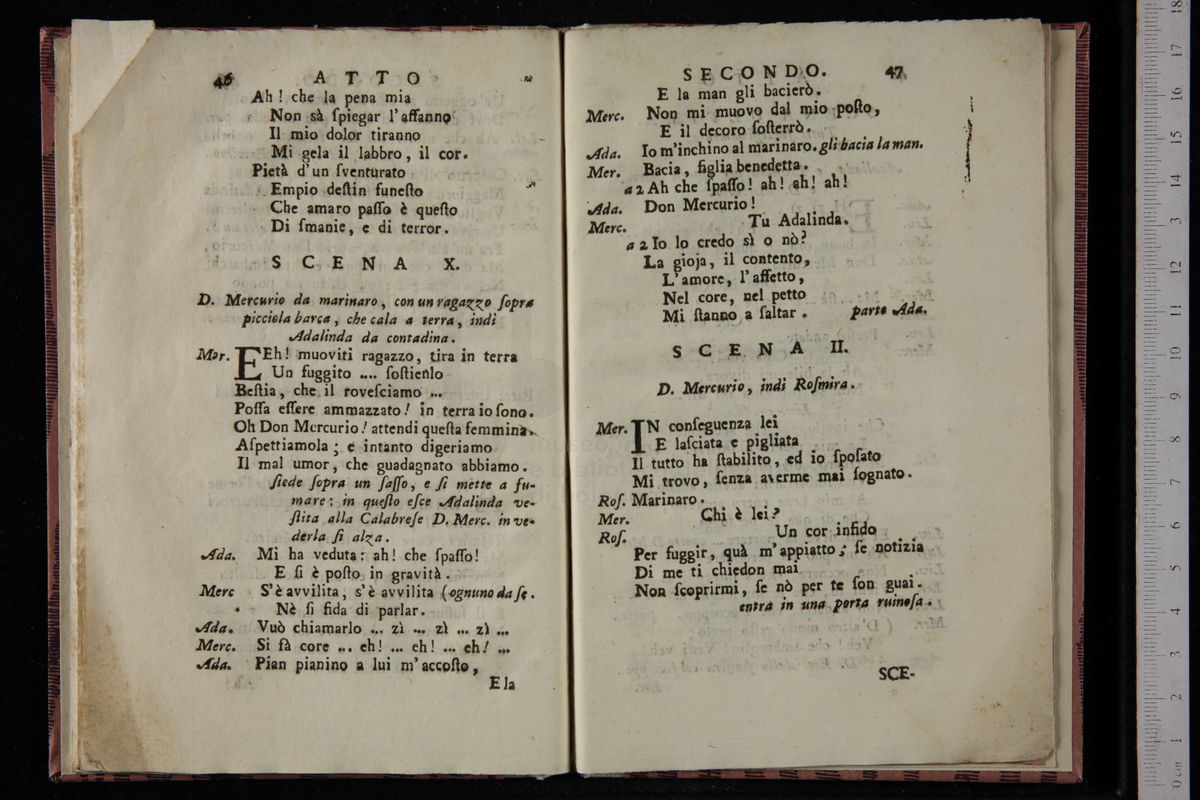 46 ATTO
Ah! che la pena mia
Non sà ſpiegar l'affanno
Il mio dolor tiranno
Mi gela il labbro, il cor.
Pietà d'un ſventurato
Empio deſtin funeſto
Che amaro paſſo è queſto
Di ſmanie, e di terror.
SCENA X.
D. Mercurio da marinaro, con un ragazzo ſopra
picciola barca, che cala a terra, indi
Adalinda da contadina.
Mer. EEh! muoviti ragazzo, tira in terra
Un fuggito .... ſoſtienlo
Beſtia, che il roveſciamo ...
Poſſa eſſere ammazzato! in terra io ſono.
Oh Don Mercurio! attendi queſta femmina.
Aſpettiamola; e intanto digeriamo
Il mal umor, che guadagnato abbiamo.
ſiede ſopra un ſaſſo, e ſi mette a fu-
mare: in queſto eſce Adalinda ve-
ſtita alla Calabreſe D. Merc. in ve-
derla ſi alza.
Ada. Mi ha veduta: ah! che ſpaſſo!
E ſi è poſto in gravità.
Merc S'è avvilita, s'è avvilita (ognuno da ſe.
Nè ſi fida di parlar.
Ada. Vuò chiamarlo ... zì ... zì ... zì ...
Merc. Si fà core ... eh! ... eh! ... eh! ...
Ada. Pian pianino a lui m'accoſto,
E la
SECONDO. 47
E la man gli bacierò.
Merc. Non mi muovo dal mio poſto,
E il decoro ſoſterrò.
Ada. Io m'inchino al marinaro. gli bacia la man.
Mer. Bacia, figlia benedetta.
a 2 Ah che ſpaſſo! ah! ah! ah!
Ada. Don Mercurio!
Merc. Tu Adalinda.
a 2 Io lo credo sì o nò?
La gioja, il contento,
L'amore, l'affetto,
Nel core, nel petto
Mi ſtanno a ſaltar. parte Ada.
SCENA II.
D. Mercurio, indi Roſmira.
Mer. IN conſeguenza lei
E laſciata e pigliata
Il tutto ha ſtabilito, ed io ſpoſato
Mi trovo, ſenza averme mai ſognato.
Roſ. Marinaro.
Mer. Chi è lei?
Roſ. Un cor infido
Per fuggir, quà m'appiatto; ſe notizia
Di me ti chiedon mai
Non ſcoprirmi, ſe nò per te ſon guai.
entra in una porta ruinoſa.
SCE-